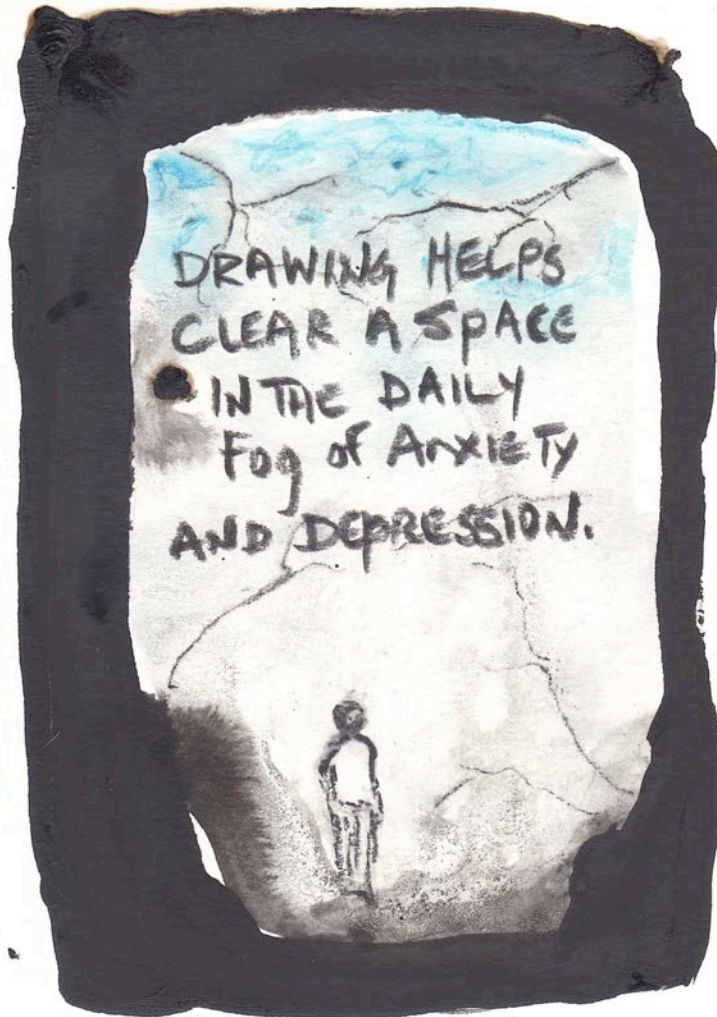 DRAWING HELPS
CLEAR A SPACE
IN THE DAILY
Fog of ANXIETY
AND DEPRESSION.